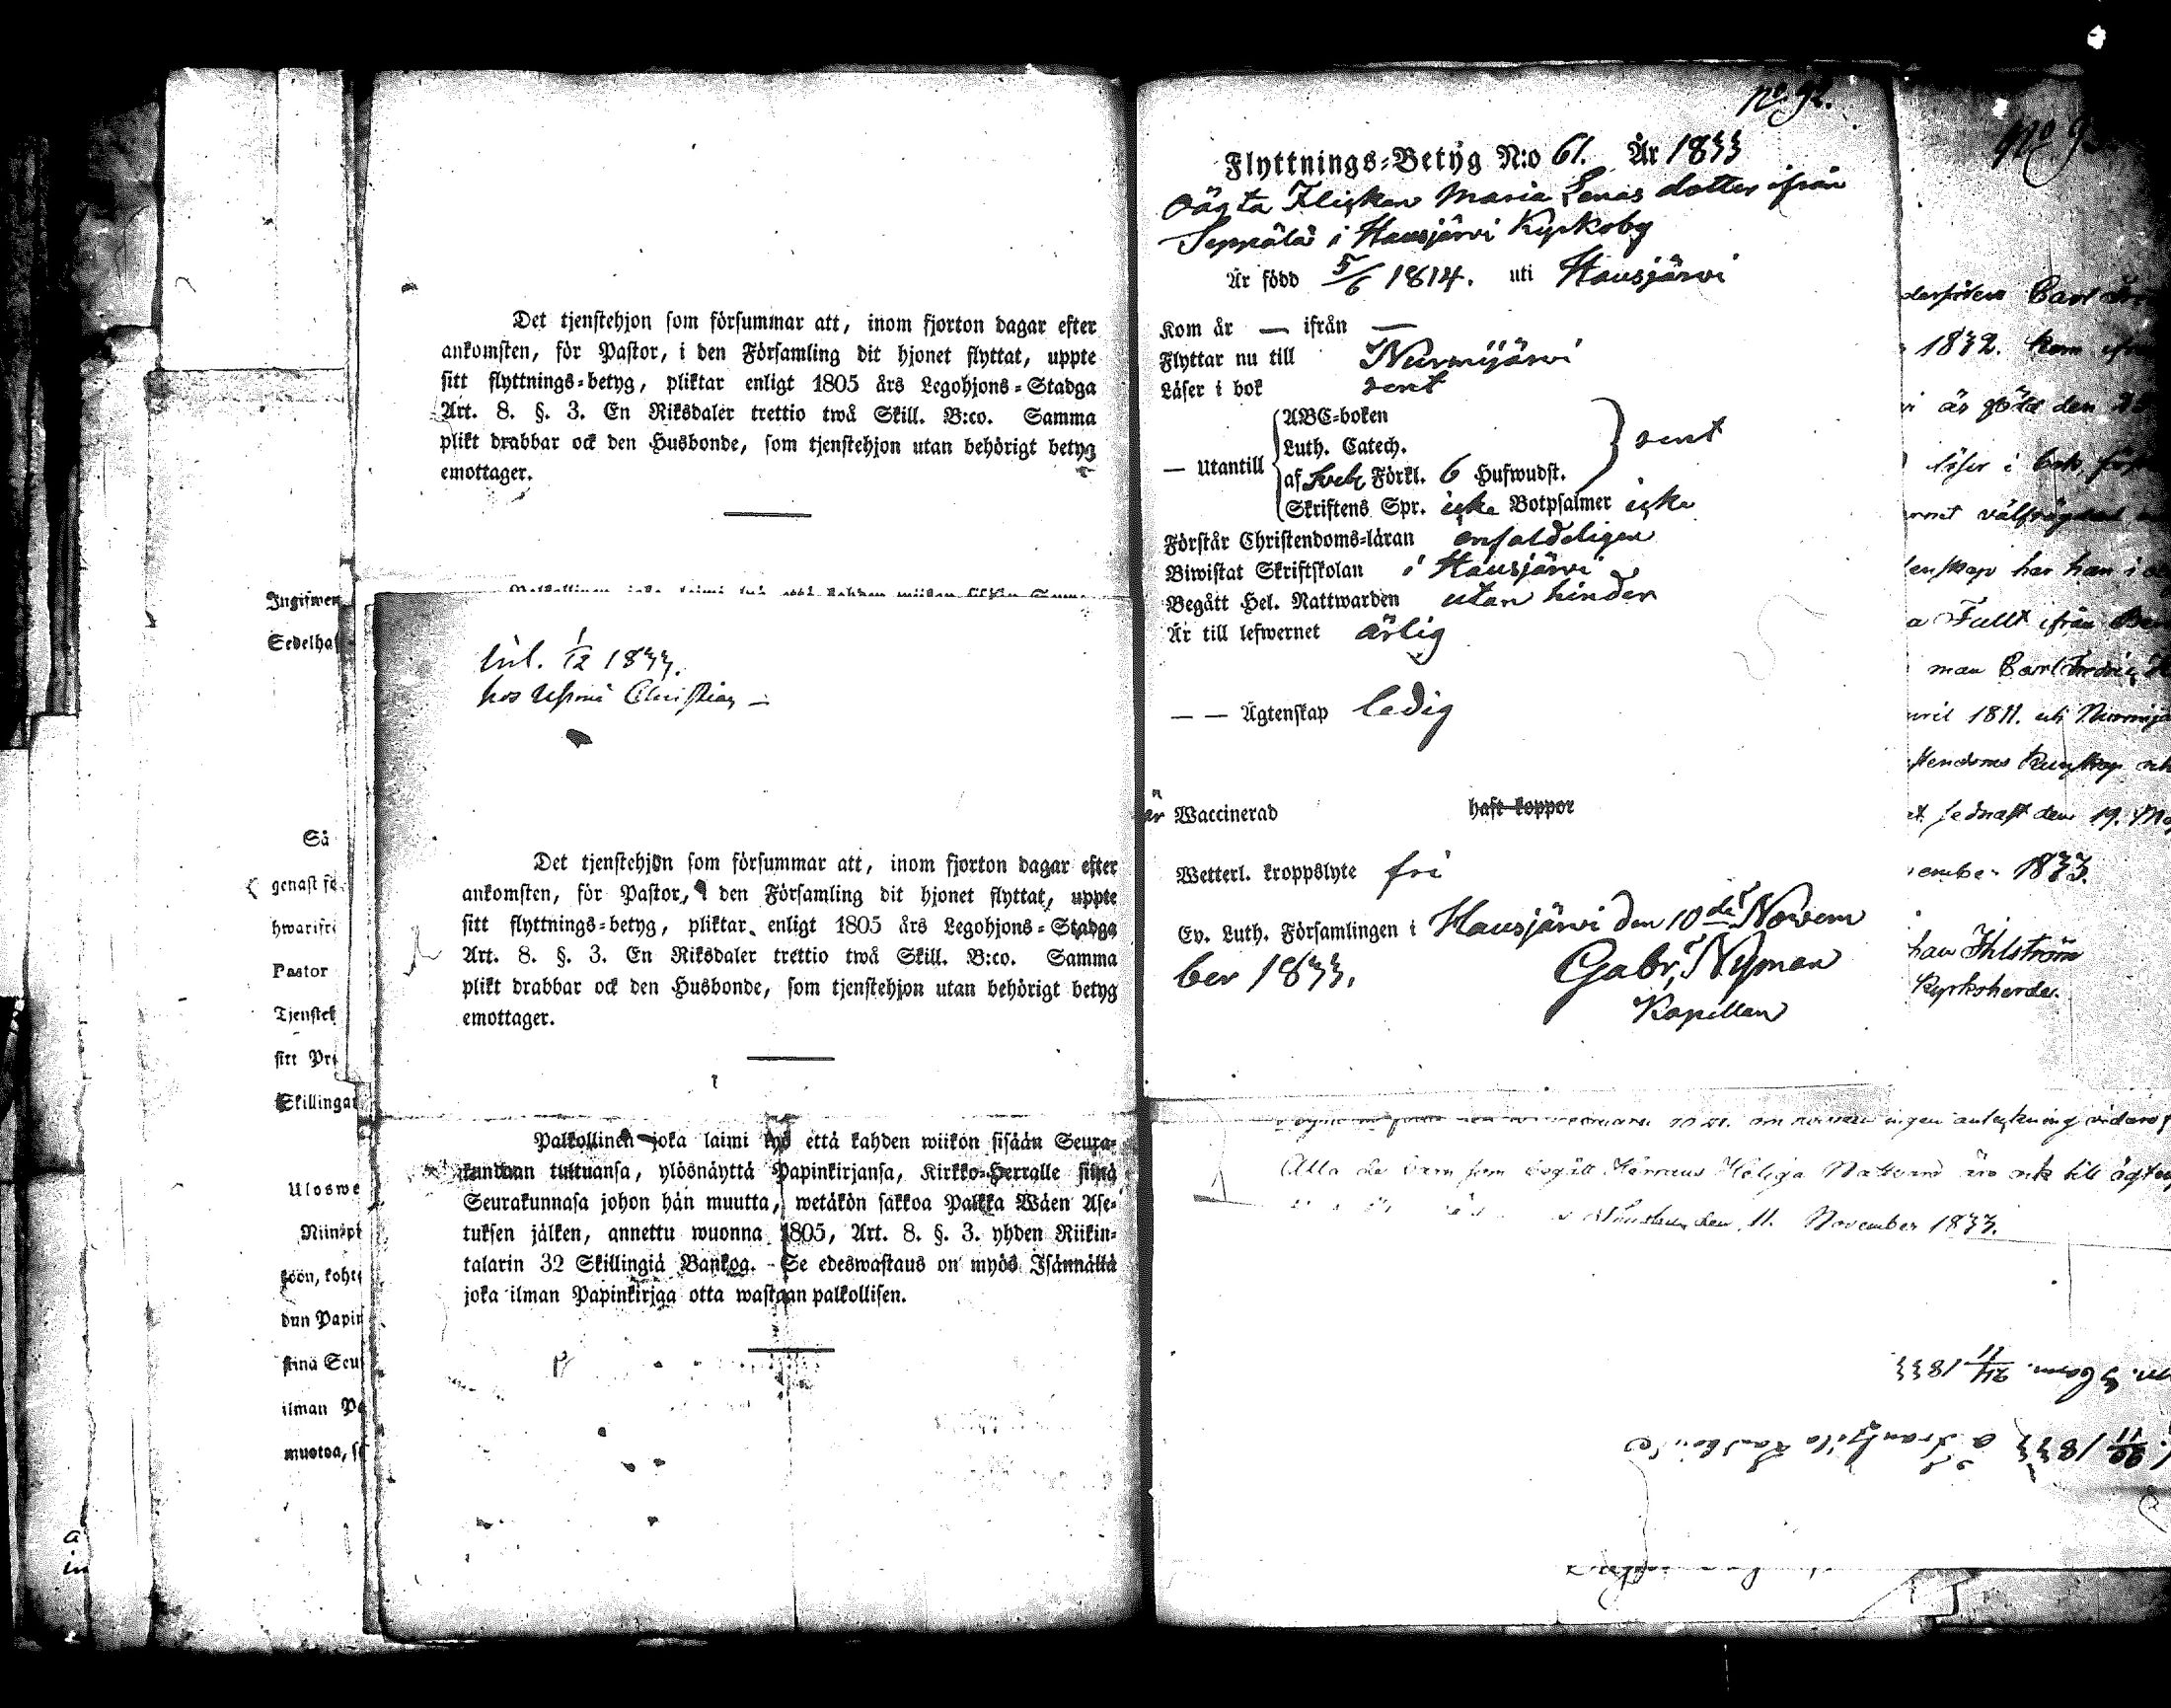 Ingifwen
Sedelhaf
Så
genast få
hwarifrå
Pastor
Tjensteh
sitt Pri
Skillingar
Uloswe
Niinspi
söön, koht
dun Papir
sinä Seu
ilman Pa
muotoa, s
a
in
Det tjenstehjon som försummar att, inom fjorton dagar efter
ankomsten, för Pastor, i den Församling dit hjonet flyttat, uppte
sitt flyttnings=betyg, pliktar enligt 1805 års Legohjons=Stadga
Art. 8. §. 3. En Riksdaler trettio twå Skill. B:co. Samma
plikt drabbar ock den Husbonde, som tjenstehjon utan behörigt betyg
emottager.
1/12 1833.
hos Christian
Det tjenstehjon som försummar att, inom fjorton dagar efter
ankomsten, för Pastor, i den Församling dit hjonet flyttat, uppte
sitt flyttnings=betyg, pliktar enligt 1805 års Legohjons=Stadga
Art. 8. §. 3. En Riksdaler trettio twå Skill. B:co. Samma
plikt drabbar ock den Husbonde, som tjenstehjon utan behörigt betyg
emottager.
Palkollinen joka laimi lyö että kahden wiikon sisään Seura=
kundaan tultuansa, ylösnäyttä Papinkirjansa, Kirkko=Herralle siinä
Seurakunnasa johon hän muutta, wetäkön sakkoa Palkka Wäen Ase=
tuksen jälken, annettu wuonna 1805, Art. 8. §. 3. yhden Riikin=
talarin 32 Skillingiä Bankog. Se edeswastaus on myös Isännällä
joka ilman Papinkirjaa otta wastaan palkollisen.
No 92.
Flyttnings=Betyg N:o 61. År 1833
Oägta Flickan Maria Lenas dotter ifrån
Seppälä i Hausjärvi Kyrkoby
Är född 5/6 1814. uti Hausjärvi
Kom år — ifrån —
Flyttar nu till Nurmijärvi
Läser i bok rent
— Utantill
ABC=boken
Luth. Catech.
af Sveb Förkl. 6 Hufwudst.
rent
Skriftens Spr. icke Botpsalmer icke
Förstår Christendoms=läran enfaldeligen
Biwistat Skriftskolan i Hausjärvi
Begått Hel. Nattwarden utan hinder
Är till lefwernet ärlig
— — Ägtenskap ledig
är Waccinerad haft koppor
Wetterl. kroppslyte fri
Ev. Luth. Församlingen i Hausjärvi den 10de Novem
ber 1833.
Gabr. Nyman
Kapellan
No 9
Carl
1832. kom ifrån
är född den
läser i bok
har han i
a Fullt ifrån
man Carl Fredric
1811. uti Nurmijä
den 19. Ma
ember 1833.
han Ihlström
Kyrkoherde.
ingen anteckning vidare
Alla de som begått Herrans Heliga Nattvard äro ock till ägten
den 11. November 1833.
24/11 1833
20/11 1833 a